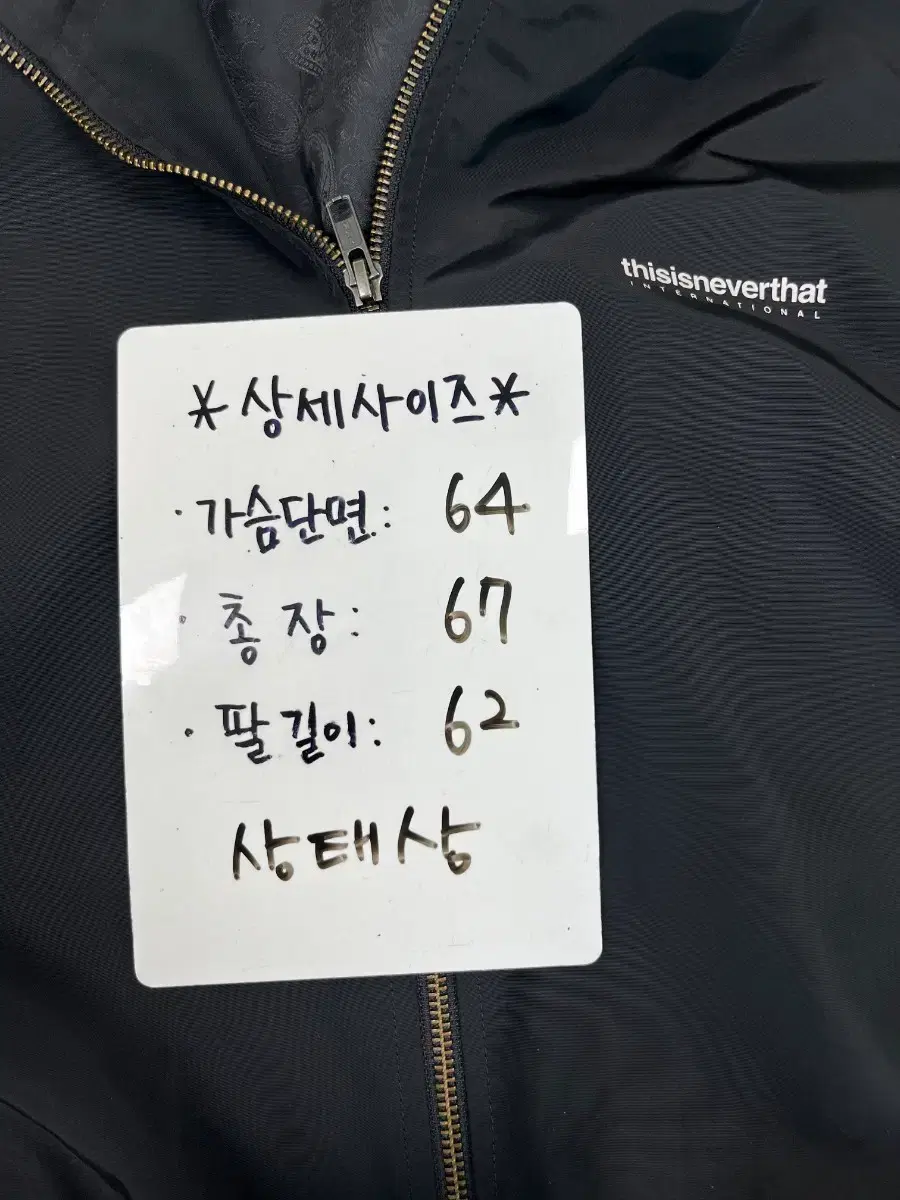 thisisneverthat
INTERNATIONAL
*상세사이즈*
·가슴단면: 64
·총장: 67
·팔길이: 62
상태상